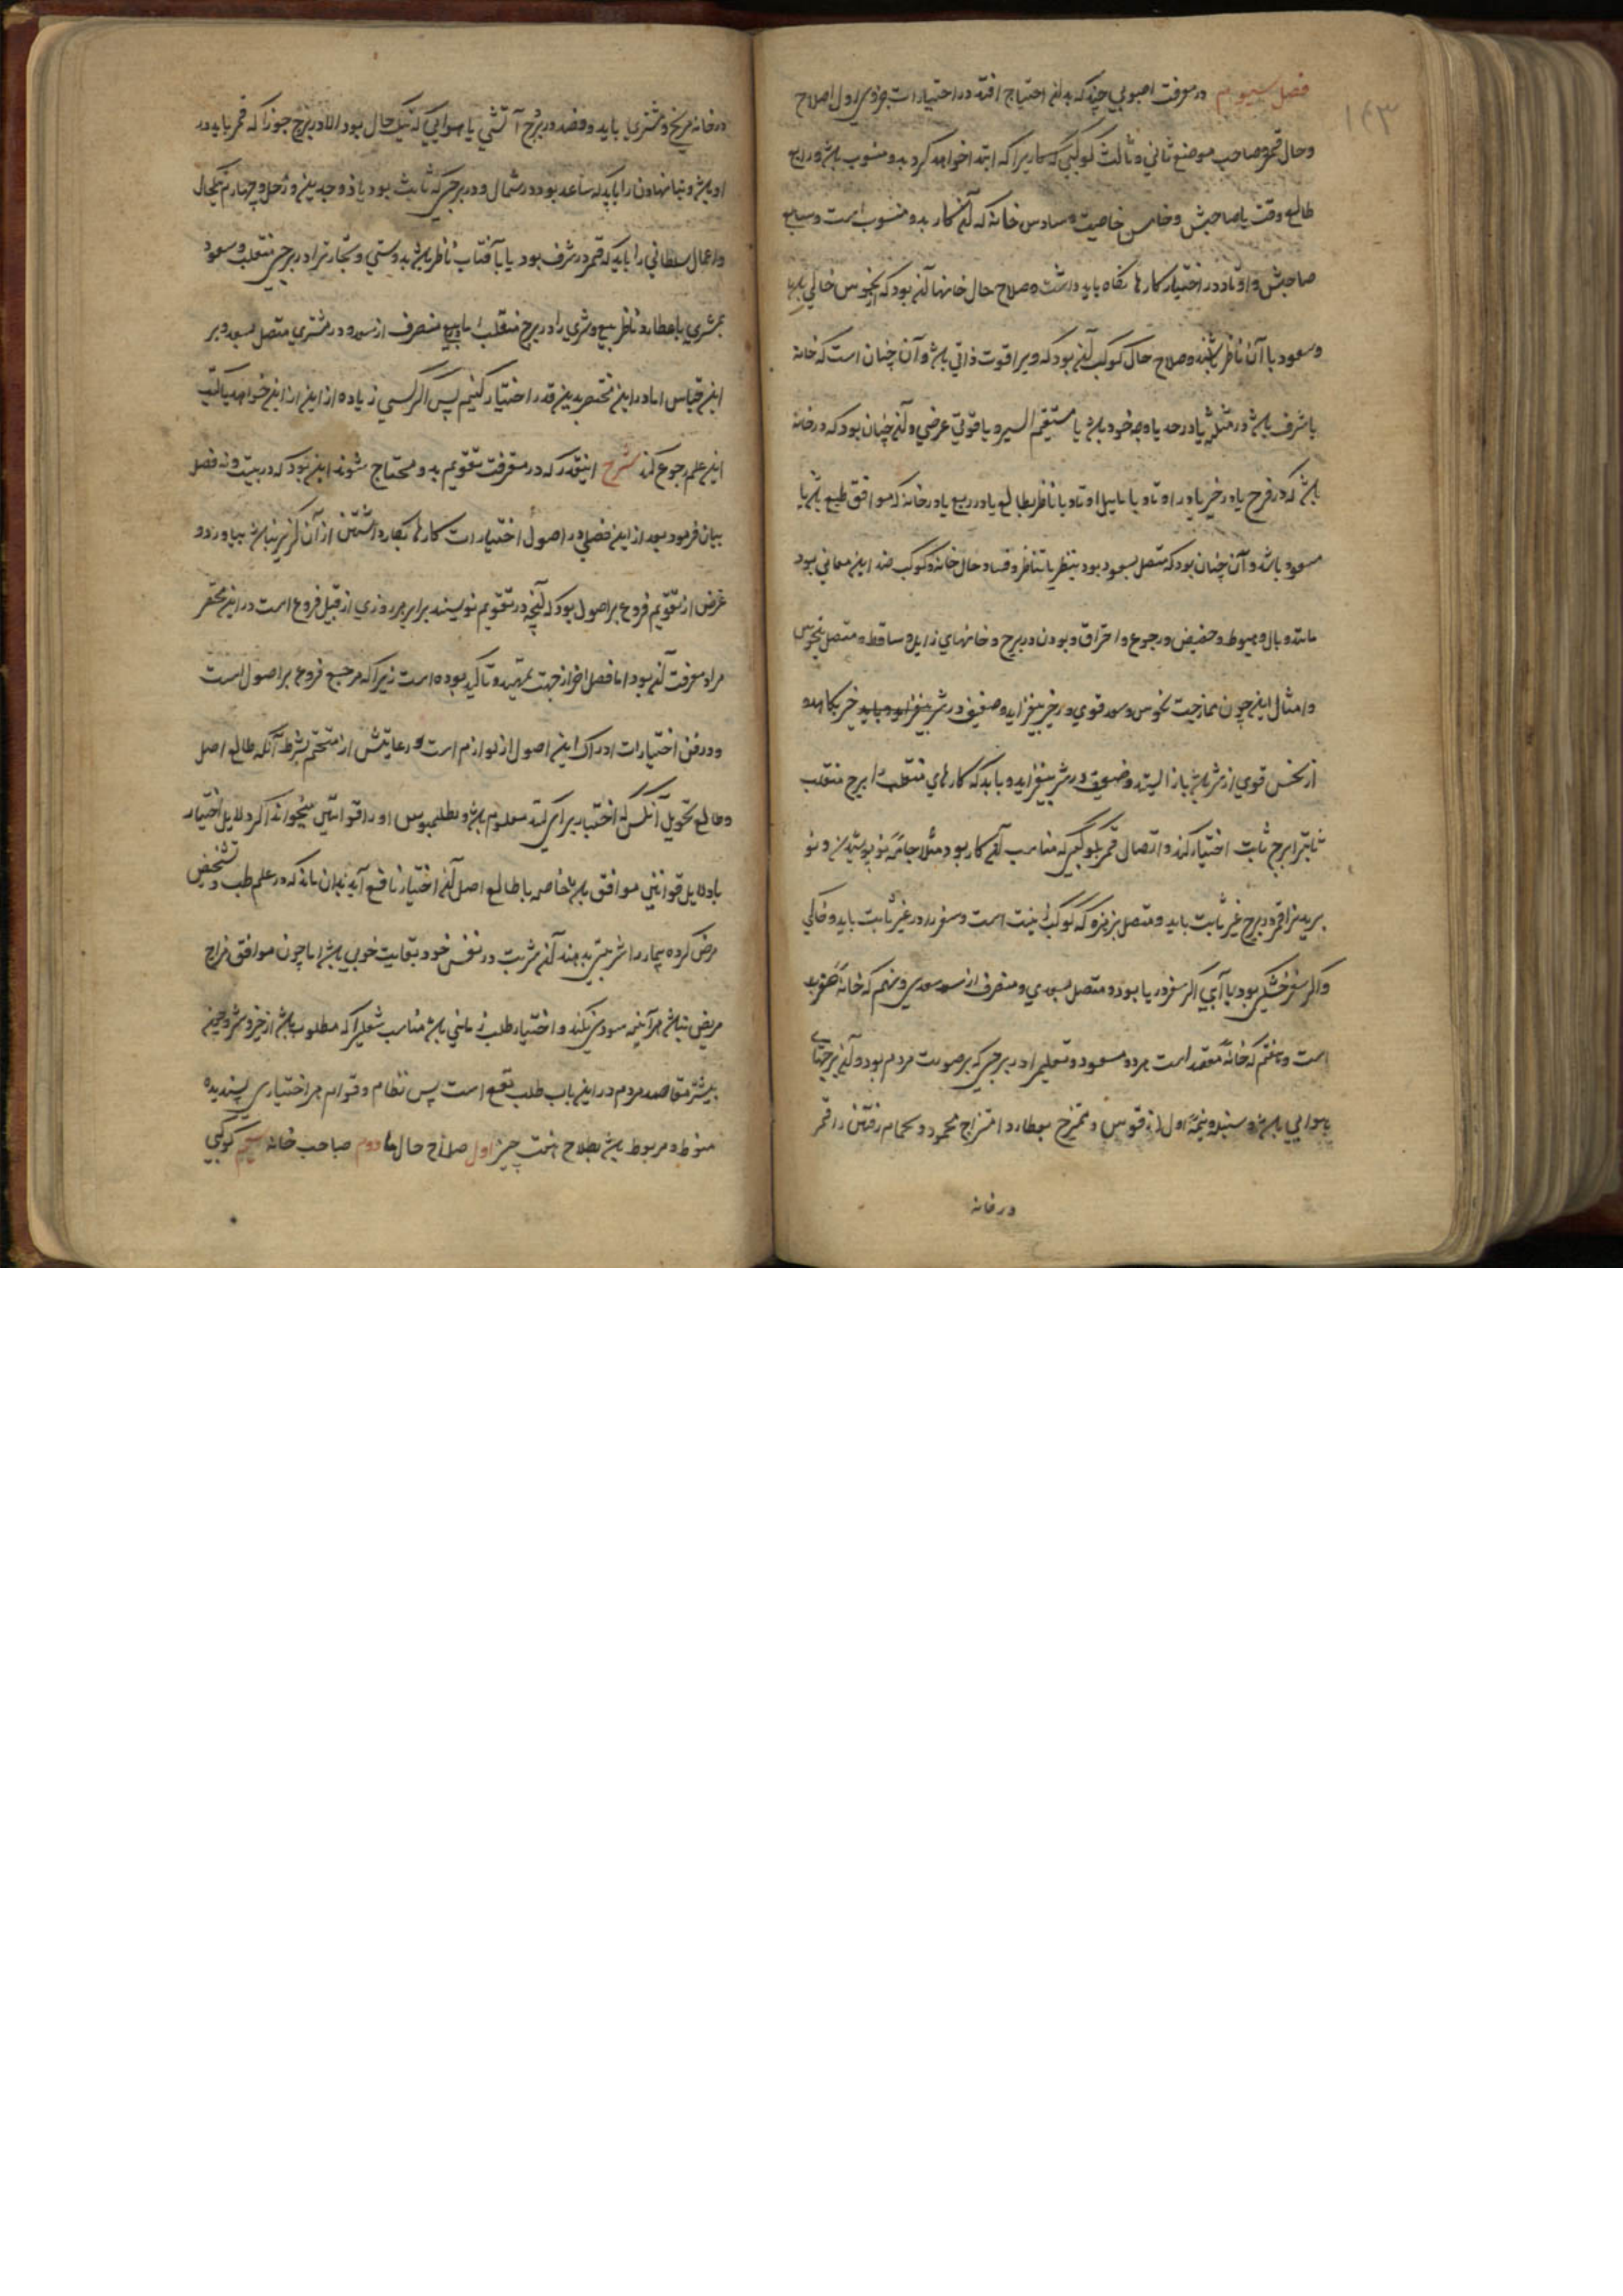 ۱۶۳
فصل سیوم در معرفت اصولی چند که بدان احتیاج افتد در اختیارات جزوی اول اصلاح
وحال قمر وصاحب موضع ثانی وثالث کوکبی که کاریرا که ابتدا خواهد کرد بدو منسوب باشد ورابع
طالع وقت یا صاحبش وخامس خاصیت وسادس خانهٔ که آن کار بدو منسوب است وسابع
صاحبش واوتاد در اختیار کارها نگاه باید داشت وصلاح حال خانها آن بود که از نحوس خالی باشد
وسعود با آن ناظر باشند وصلاح حال کوکب آن بود که ویرا قوت ذاتی باشد وآن چنان است که خانه
یا شرف باشد در مثلثه یا در حد یا وجه خود باشد یا مستقیم السیر ویا قوتی عرضی وآن چنان بود که در خانه
باشد که در فرح یا در خیر یا در اوتاد یا مایل اوتاد یا ناظر بطالع یا در ربع یا در خانه که موافق طبع باشد یا
مسعود باشد وآن چنان بود که متصل بسعود بود بنظر یا تناظر وفساد حال خانه وکوکب ضد این معانی بود
مانند وبال وهبوط وحضیض ورجوع واحتراق وبودن در برج وخانهای زایل وساقط ومتصل بنحوس
وامثال این چون ممازجت نحوس وسعد قوی در خیر بیفزاید وضعیف در شر بیفزاید وباید خیر بکاهد و
از نحس قوی از شر باز ایستد وضعیف در شر بیفزاید وباید که کارهای منقلب را برج منقلب
ثابت را برج ثابت اختیار کند واتصال قمر بکوکبی که مناسب آن کار بود مثلا جامهٔ نو پوشیدن ونو
بریدن را قمر در برج غیر ثابت باید ومتصل بزهره که کوکب زینت است وسفر را در غیر ثابت باید وخاکی
واگر سفر خشکی بود یا آبی اگر سفر دریا بود ومتصل بسعدی ومنصرف از سعدی ونهم که خانهٔ سفر
است وهفتم که خانهٔ مقصد است هر دو مسعود وتعلیم را در برجی که بر صورت مردم بود وآن برجهای
هوایی باشد وسنبله ونیمهٔ اول از قوس وممتزج بعطارد امتزاج محمود وبحمام رفتن را قمر
در خانه
در خانه مریخ ومشتری باید وفصد در برج آتشی یا هوایی که نیک حال بود الا در برج جوزا که قمر باید در
او باشد وبنا نهادن را باید که صاعد بود در شمال ودر برجی که ثابت بود یا ذو جسدین وزحل وچهارم نیکحال
واعمال سلطانی را باید که قمر در شرف بود یا بآفتاب ناظر باشد بدوستی وتجارت را در برج منقلب وسعود
بمشتری یا عطارد ناظر بیع وشری را در برج منقلب بایع منصرف از سعد ودر مشتری متصل بسعد وبر
این قیاس اما در این مختصر بدین قدر اختیار کنیم پس اگر کسی زیاده از این از این خواهد بکتب
این علم رجوع کند شرح اینقدر که در معرفت تقویم بدو محتاج شوند این بود که در بیست ونه فصل
بیان فرمود بعد از این فصلی در اصول اختیارات کارها بکار داشتن از آن گزیر نباشد بیاورد و
غرض از تقویم فروع بر اصول بود که آنچه در تقویم نویسند برابر هر روزی از قبیل فروع است در این مختصر
مراد معرفت آن بود اما فصل اخر از جهت تمهید وتاکید بوده است زیرا که مرجع فروع بر اصول است
ودر فن اختیارات ادراک این اصول از لوازم است ورعایتش از متحتم بشرط آنکه طالع اصل
وطالع تحویل آنکس که اختیار برای کند معلوم باشد وبطلمیوس او را قوانین میخواند اگر دلایل اختیار
با دلایل قوانین موافق باشد خاصه با طالع اصل آن اختیار نافع آید بدان ماند که در علم طب تشخیص
مرض کرده بیمار را شربتی بدهند آن شربت در نفس خود بغایت خوبی باشد اما چون موافق مزاج
مریض نباشد هر آینه سودی نکند واختیار طلب زمانی باشد مناسب شغلیرا که مطلوب باشد از خیر وشر وچون
بیشتر مقاصد مردم در این باب طلب نفع است پس نظام وقوام هر اختیاری پسندیده
منوط ومربوط باشد بصلاح هفت چیز اول صلاح حال ماه دوم صاحب خانه سیوم کوکبی